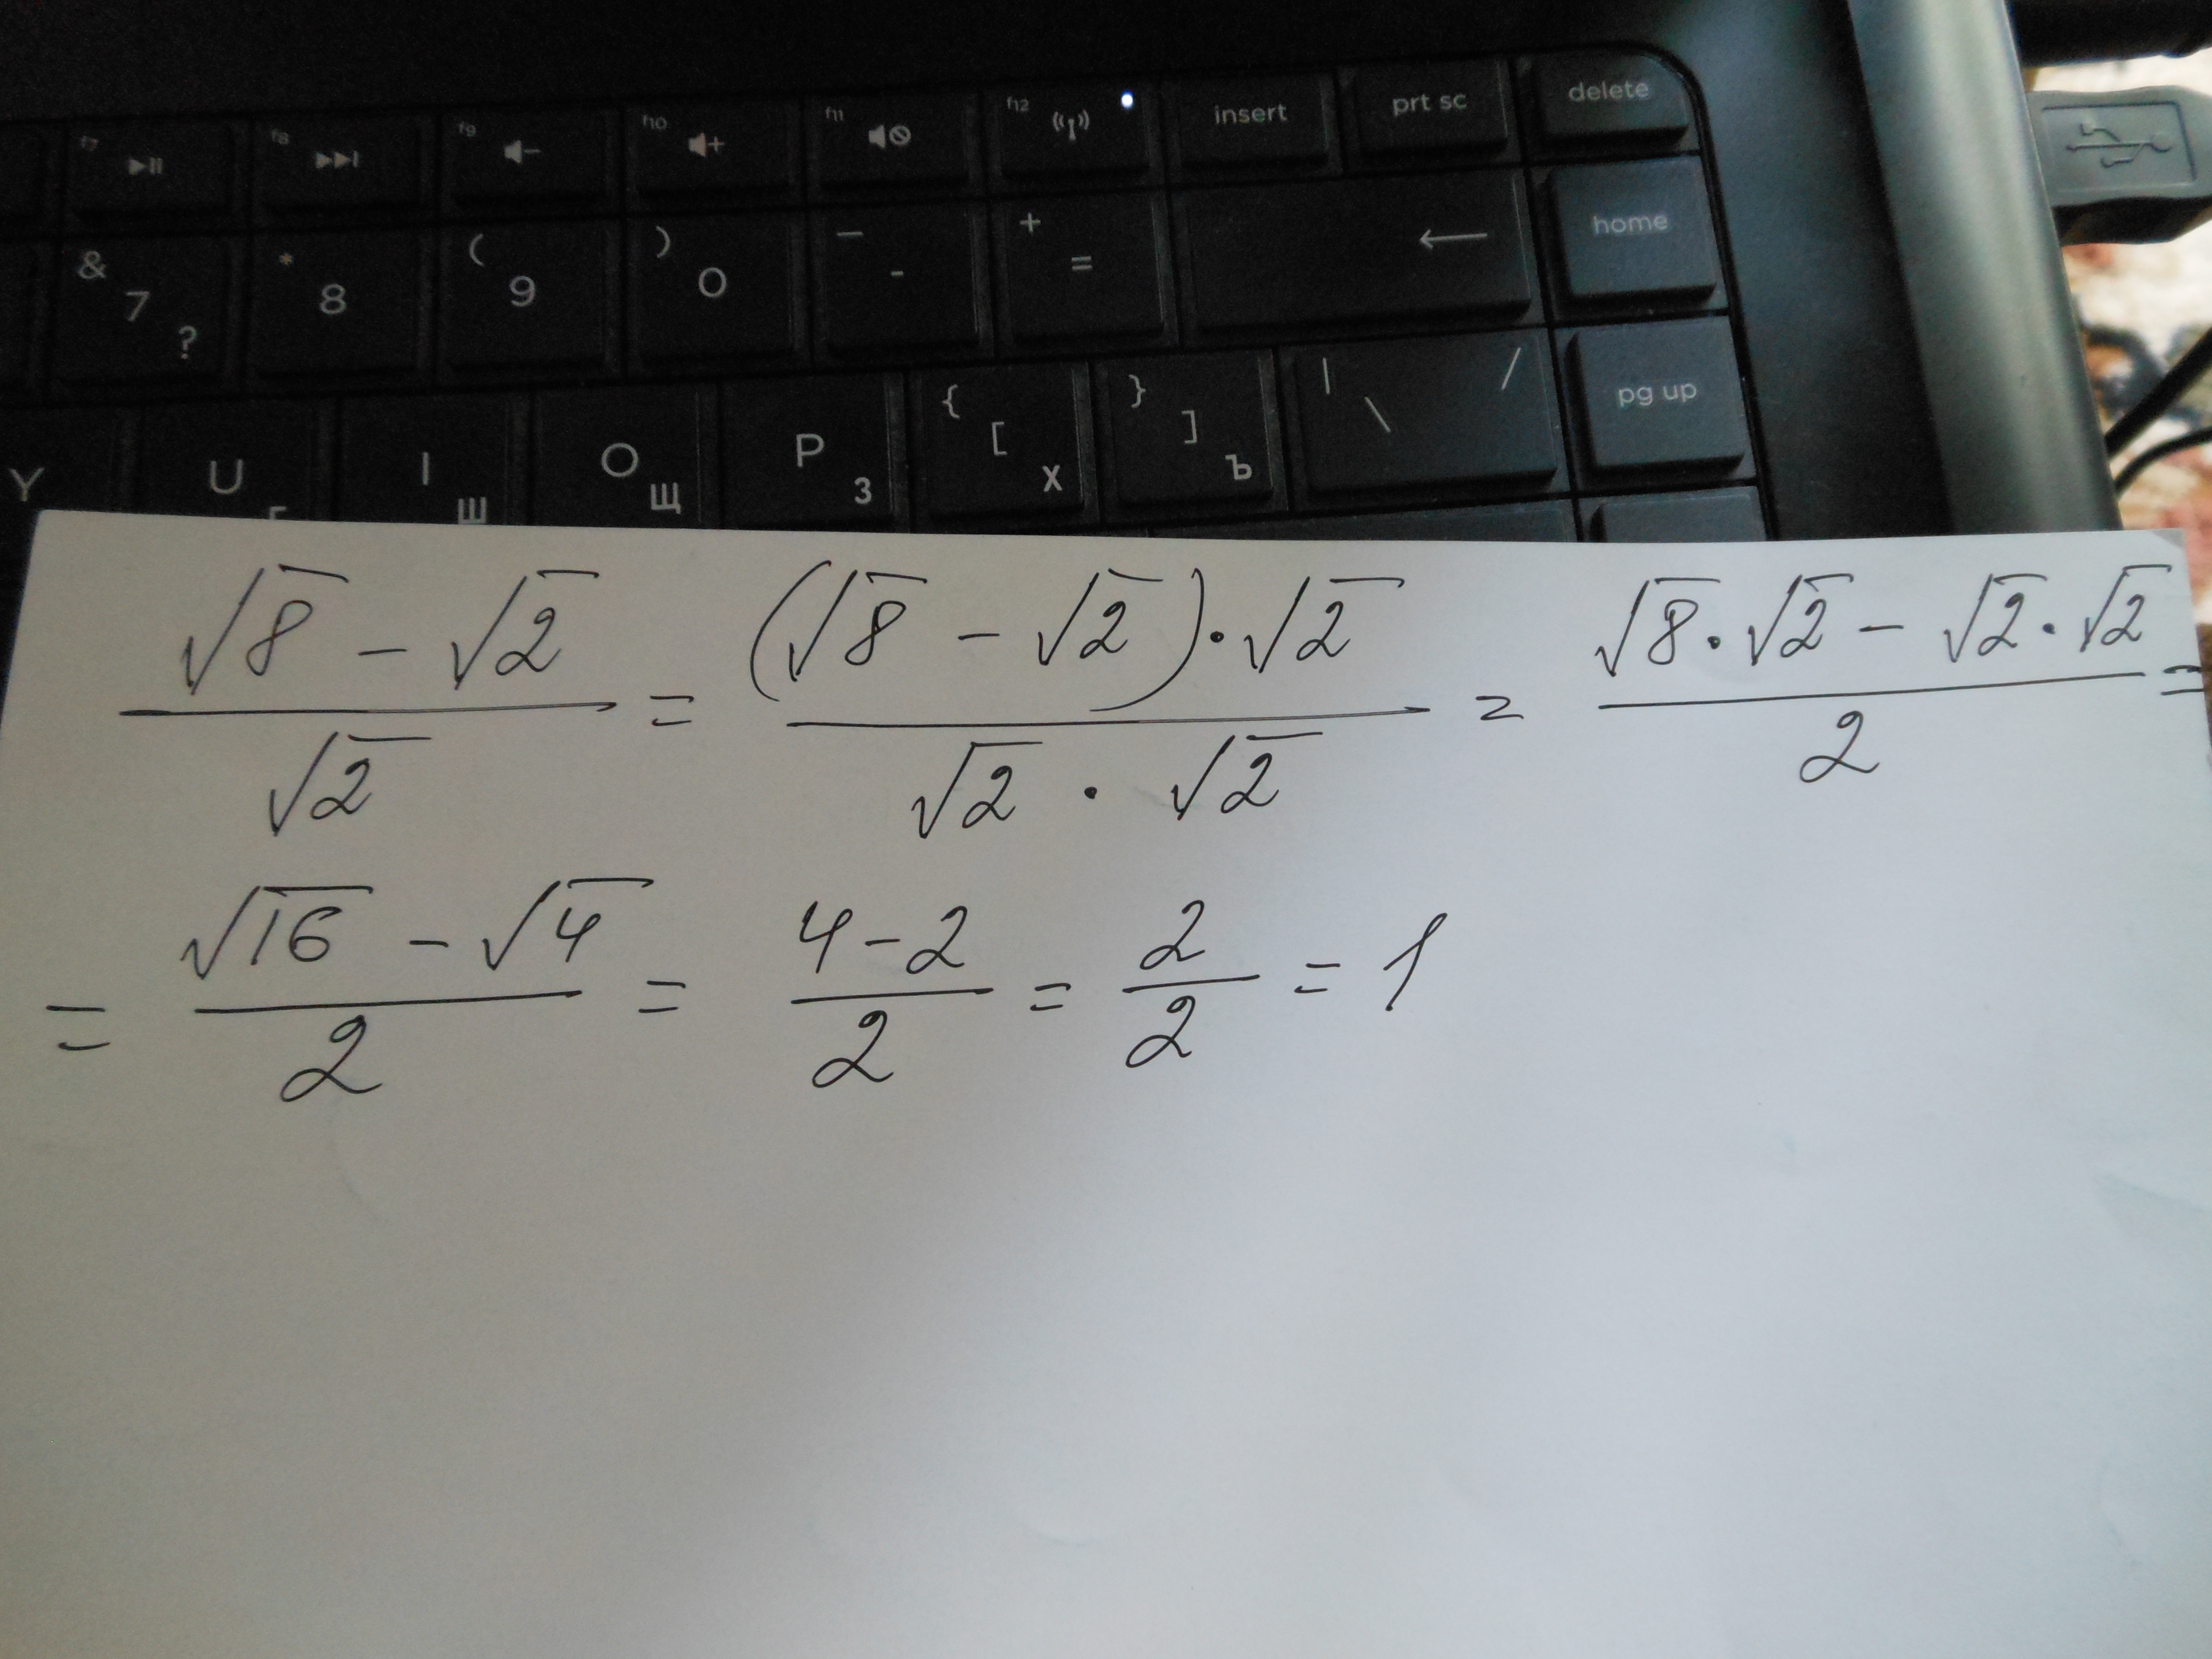 f7 f8 f9 f10 f11 f12 insert prt sc delete
& 7 ? * 8 ( 9 ) 0 — - + = ← home
Y U I Ш O Щ P З { [ Х } ] Ъ | \ / pg up
(√8 − √2)/√2 = ((√8 − √2) · √2)/(√2 · √2) = (√8 · √2 − √2 · √2)/2 =
= (√16 − √4)/2 = (4 − 2)/2 = 2/2 = 1